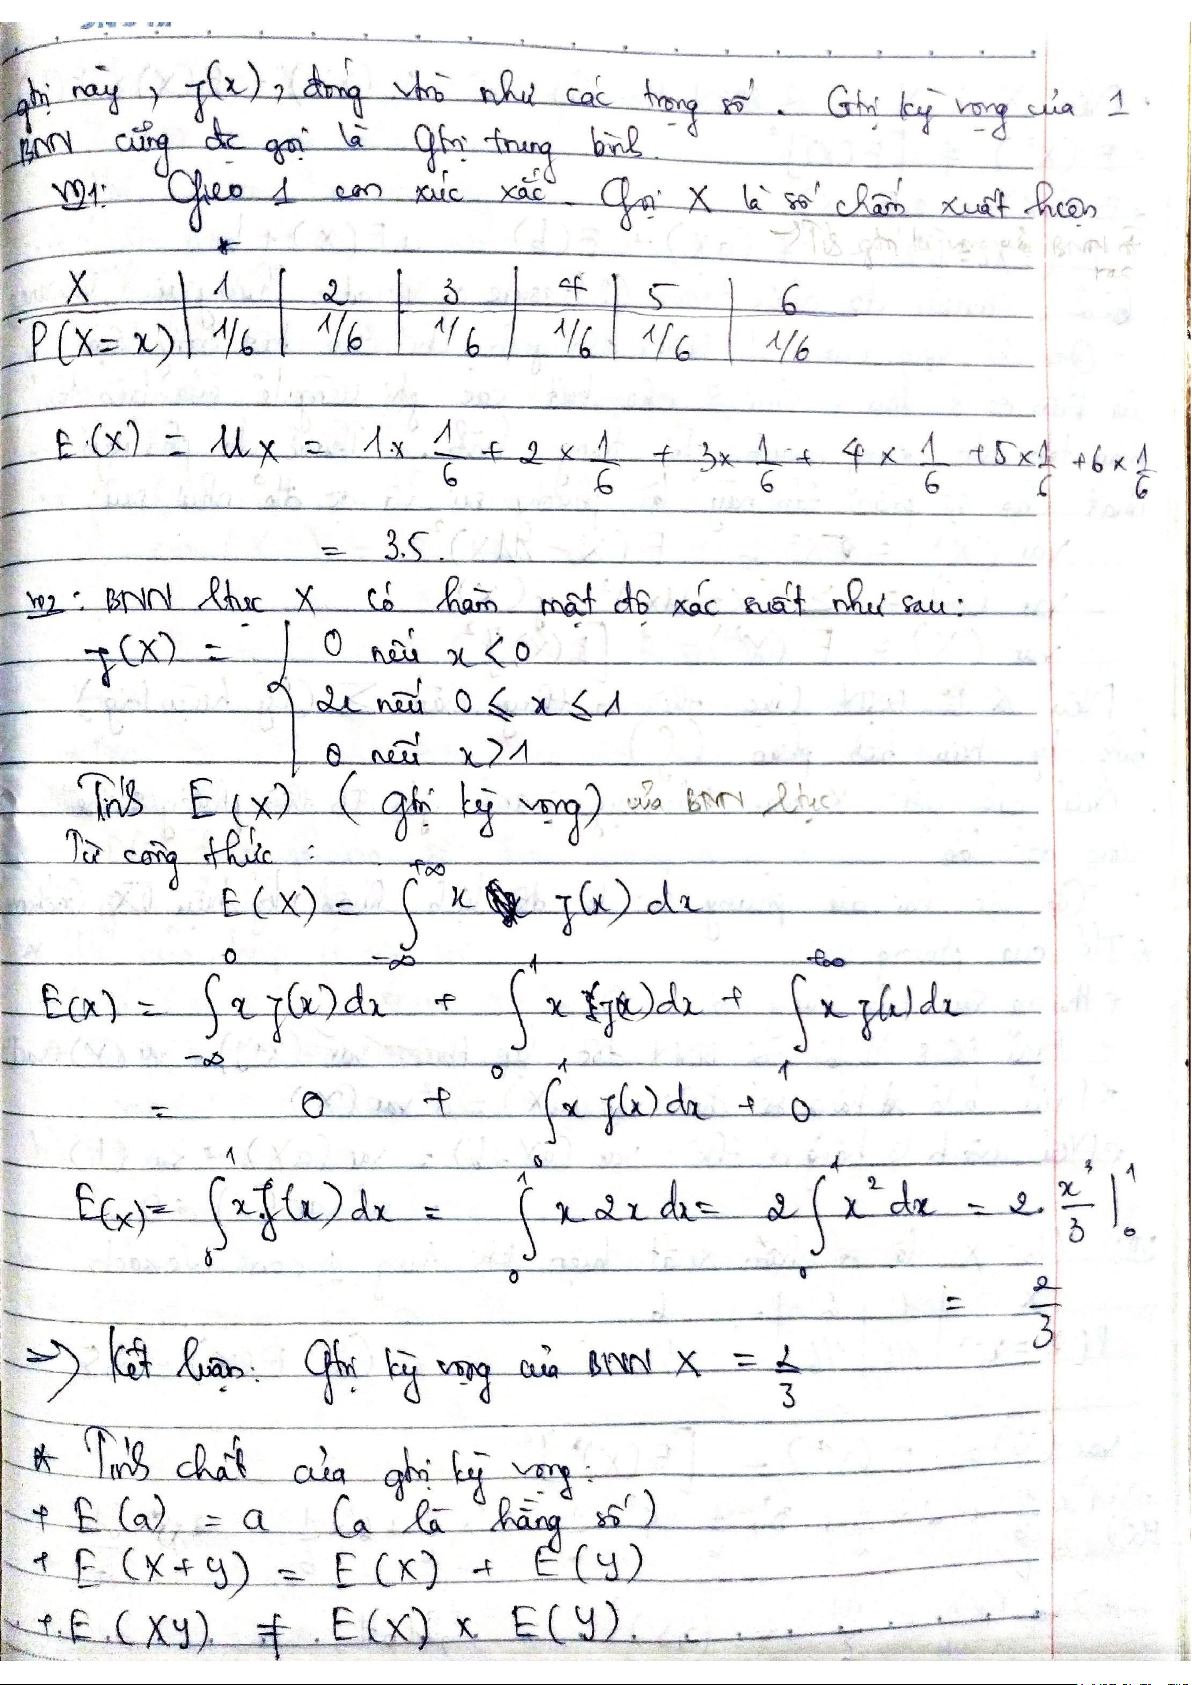 gtrị này, f(x), đóng vtrò như các trọng số. Gtrị kỳ vọng của 1
BNN cũng đc gọi là Gtrị trung bình.
VD1: Gieo 1 con xúc xắc. Gọi X là số chấm xuất hiện
X | 1 | 2 | 3 | 4 | 5 | 6
P(X = x) | 1/6 | 1/6 | 1/6 | 1/6 | 1/6 | 1/6
E(X) = μx = 1 × 1/6 + 2 × 1/6 + 3 × 1/6 + 4 × 1/6 + 5 × 1/6 + 6 × 1/6
= 3.5.
VD2: BNN ltục X có hàm mật độ xác suất như sau:
f(X) = { 0 nếu x < 0
2x nếu 0 ≤ x ≤ 1
0 nếu x > 1
Tính E(X) (gtrị kỳ vọng) của BNN ltục
Từ công thức:
E(X) = ∫_{-∞}^{+∞} x f(x) dx
E(x) = ∫_{-∞}^{0} x f(x) dx + ∫_{0}^{1} x f(x) dx + ∫_{1}^{+∞} x f(x) dx
= 0 + ∫_{0}^{1} x f(x) dx + 0
E(x) = ∫_{0}^{1} x.f(x) dx = ∫_{0}^{1} x 2x dx = 2 ∫_{0}^{1} x² dx = 2. x³/3 |_{0}^{1}
= 2/3
=> Kết luận: Gtrị kỳ vọng của BNN X = 2/3
* Tính chất của gtrị kỳ vọng:
+ E(a) = a (a là hằng số)
+ E(X+y) = E(X) + E(y)
+ E(Xy) ≠ E(X) x E(y).